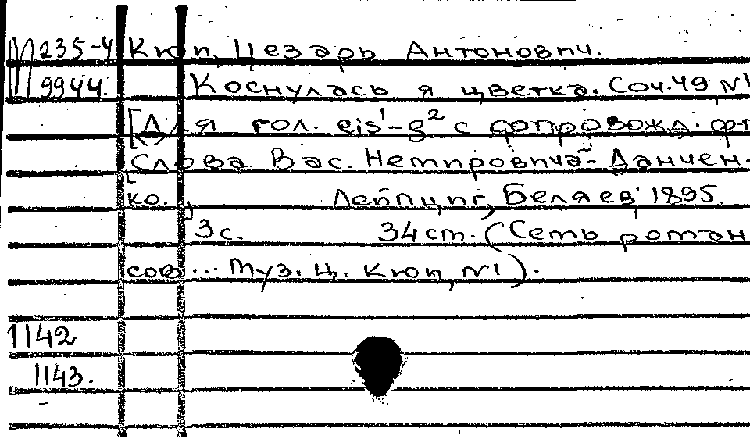 М 235-4 Кюи, Цезарь Антонович.
9944. Коснулась я цветка. Соч. 49 №1
[Для гол. eis¹-g² с сопровожд. ф-п
Слова Вас. Немировича-Данчен-
ко. Лейпциг, Беляев, 1895.
3 с. 34 cm. (Семь роман
сов ... муз. Ц. Кюи, №1).
1142
1143.